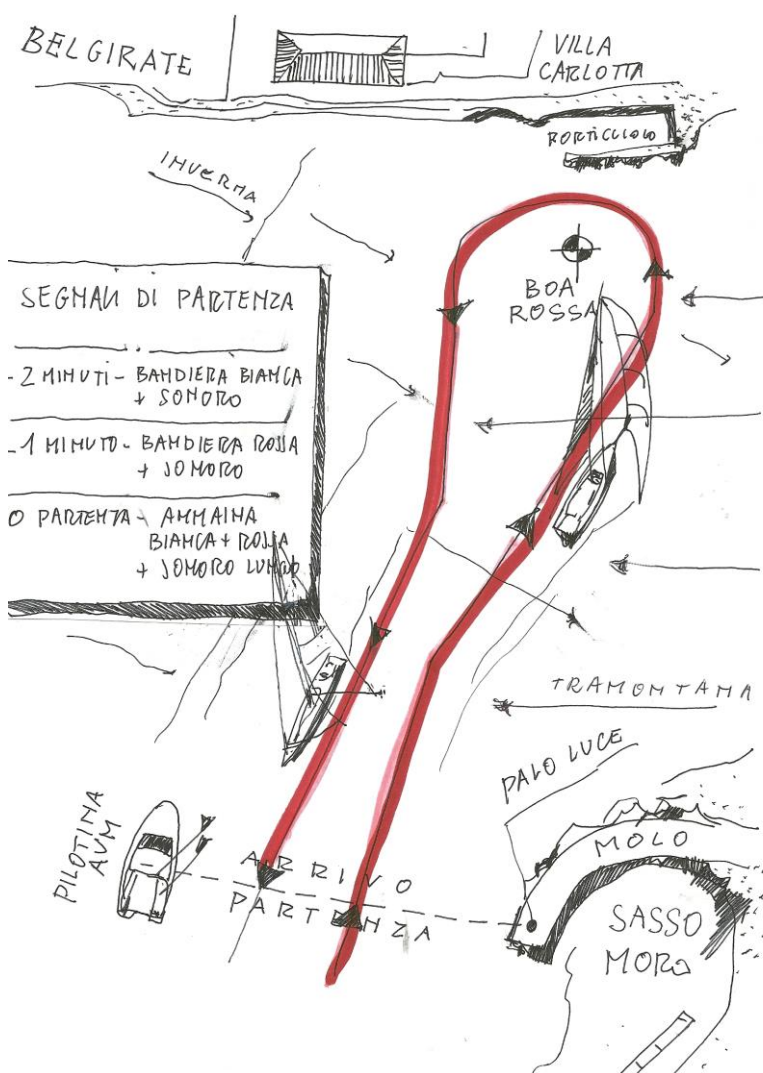 BELGIRATE
VILLA
CARLOTTA
PORTICCIOLO
INVERNA
BOA
ROSSA
SEGNALI DI PARTENZA
- 2 MINUTI - BANDIERA BIANCA
+ SONORO
- 1 MINUTO - BANDIERA ROSSA
+ SONORO
0 PARTENZA - AMMAINA
BIANCA + ROSSA
+ SONORO LUNGO
TRAMONTANA
PALO LUCE
MOLO
PILOTINA
AVM
ARRIVO
PARTENZA
SASSO
MORO